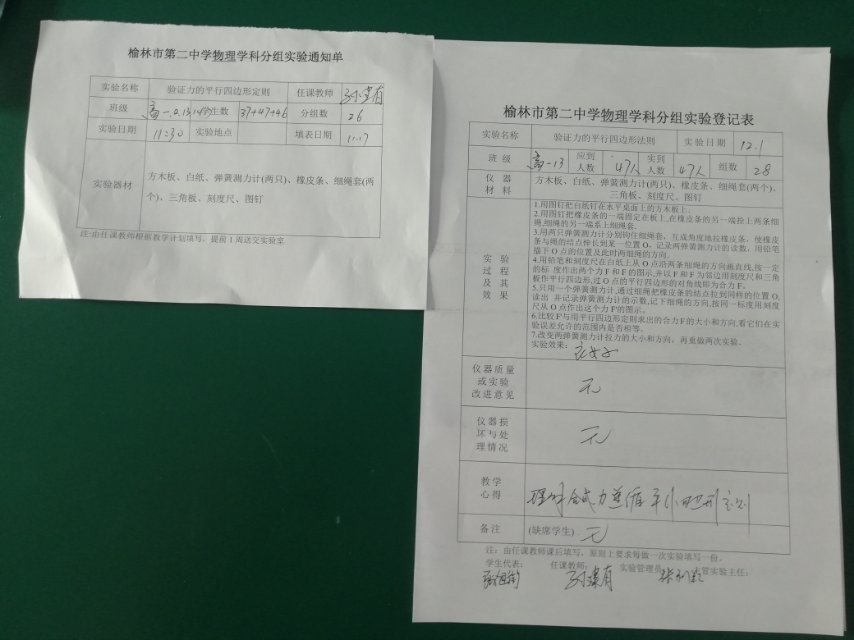 榆林市第二中学物理学科分组实验通知单
实验名称 验证力的平行四边形定则 任课教师
班级 高一. 学生数 37+47+46 分组数 26
实验日期 11:30 实验地点 填表日期 11.17
实验器材 方木板、白纸、弹簧测力计(两只)、橡皮条、细绳套(两
个)、三角板、刻度尺、图钉
注:由任课教师根据教学计划填写，提前1周送交实验室
榆林市第二中学物理学科分组实验登记表
实验名称 验证力的平行四边形法则 实验日期 12.1
班级 高一13 应到人数 47人 实到人数 47人 组数 28
仪器材料 方木板、白纸、弹簧测力计(两只)、橡皮条、细绳套(两个)、
三角板、刻度尺、图钉
实验过程及其效果
1.用图钉把白纸钉在水平桌面上的方木板上。
2.用图钉把橡皮条的一端固定在板上,在橡皮条的另一端拴上两条细
绳,细绳的另一端系上细绳套.
3.用两只弹簧测力计分别钩住细绳套，互成角度地拉橡皮条，使橡皮
条与绳的结点伸长到某一位置O，记录两弹簧测力计的读数，用铅笔
描下O点的位置及此时两细绳的方向.
4.用铅笔和刻度尺在白纸上从O点沿两条细绳的方向画直线,按一定
的标 度作出两个力F和F的图示,并以F和F为邻边用刻度尺和三角
板作平行四边形,过O点的平行四边形的对角线即为合力F.
5.只用一个弹簧测力计,通过细绳把橡皮条的结点拉到同样的位置O,
读出 并记录弹簧测力计的示数,记下细绳的方向,按同一标度用刻度
尺从O点作出这个力F'的图示.
6.比较F'与用平行四边形定则求出的合力F的大小和方向,看它们在实
验误差允许的范围内是否相等.
7.改变两弹簧测力计拉力的大小和方向，再重做两次实验.
实验效果:
仪器质量或实验改进意见 无
仪器损坏与处理情况 无
教学心得
备注 (缺席学生) 无
注：由任课教师课后填写，原则上要求每做一次实验填写一份。
学生代表: 任课教师: 实验管理员: 主管实验主任: